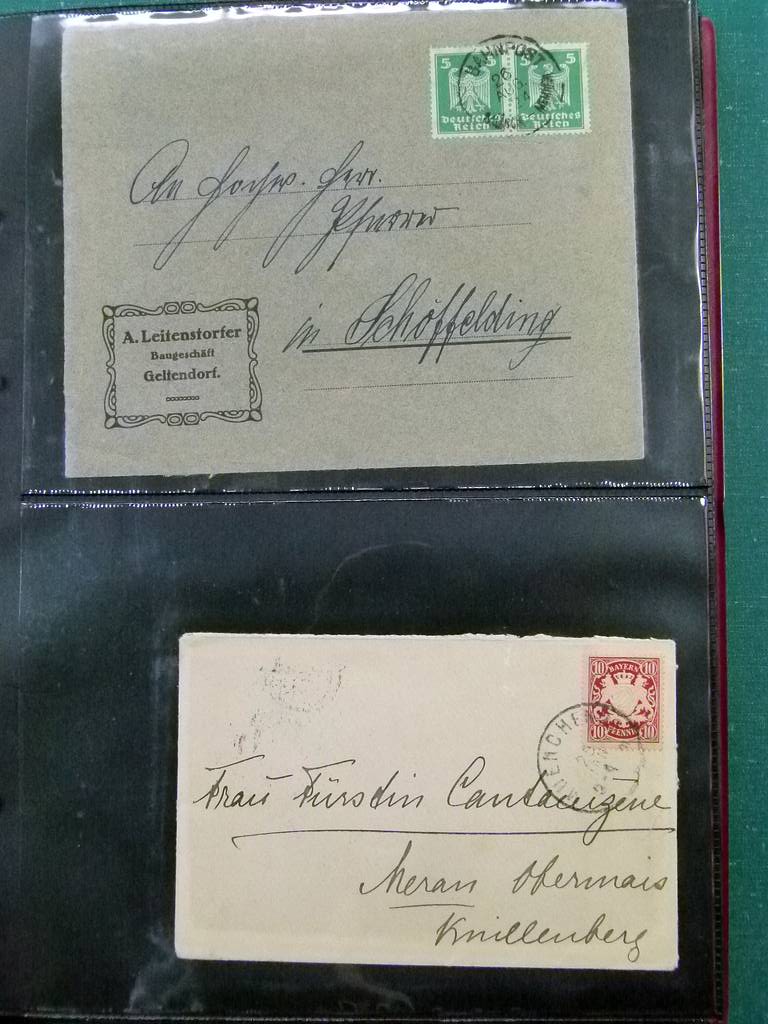 5 5
BAHNPOST
26
Deutsches Deutsches
Reich Reich
An Hochw. Herr.
Pfarrer
in Schöffelding
A. Leitenstorfer
Baugeschäft
Geltendorf.
10 BAYERN 10
10 PFENNIG 10
MUENCHEN
Frau Fürstin Cantacuzene
Meran Obermais
Knillenberg